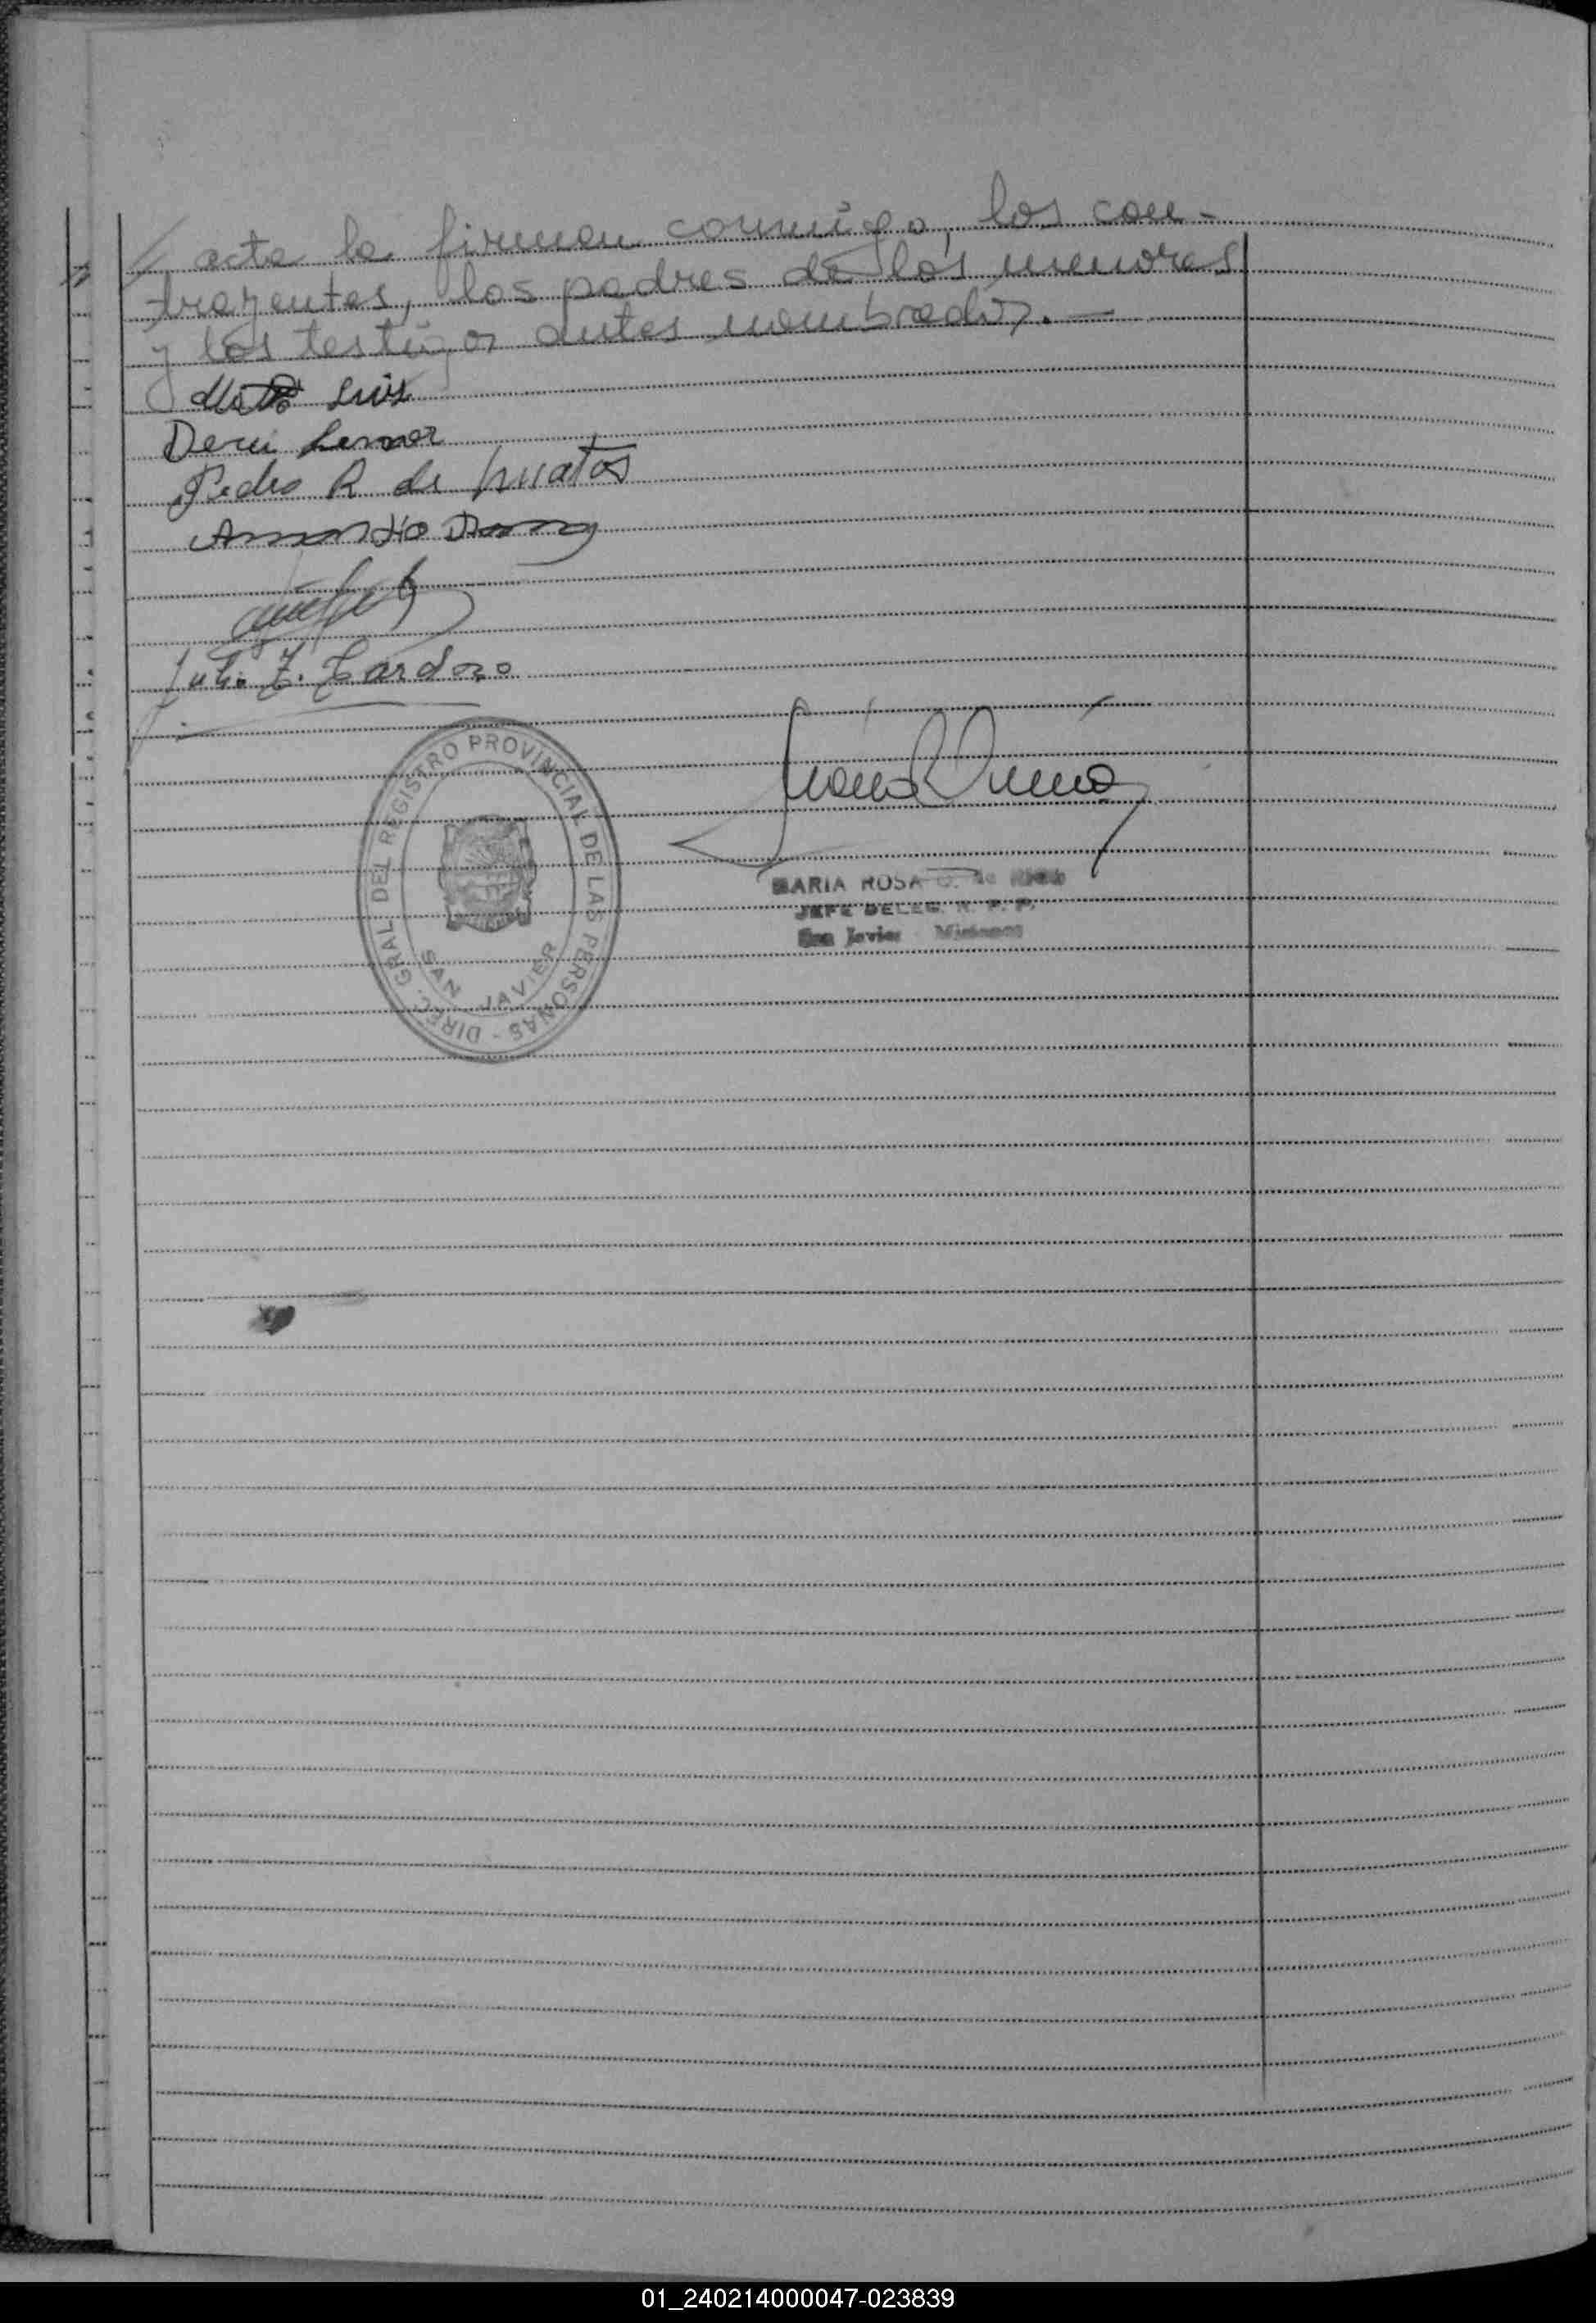 // acta la firman conmigo, los con-
trayentes, los padres de los menores
y los testigos antes nombrados.—
Luis
Pedro R de Matos
Julio Z. Cardozo
DIREC. GRAL. DEL REGISTRO PROVINCIAL DE LAS PERSONAS -
SAN JAVIER
MARIA ROSA
JEFE DELEG. R. P. P.
San Javier - Misiones
01_240214000047-023839